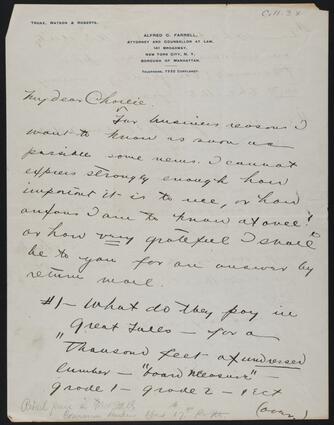 TRUAX, WATSON & ROBERTS.
ALFRED C. FARRELL,
ATTORNEY AND COUNSELLOR AT LAW,
141 BROADWAY,
NEW YORK CITY, N. Y.
BOROUGH OF MANHATTAN.
TELEPHONE, 7330 CORTLANDT.
My dear Charlie
For business reasons I
want to know as soon as
possible some news. I cannot
express strongly enough how
important it is to me, or how
anxious I am to know at once!
or how very grateful I shall
be to you for an answer by
return mail.
#1 - What do they pay in
Great Falls - for a
"Thousand feet of undressed
lumber - "board measure" -
grade 1 - grade 2 - & ct
(over)